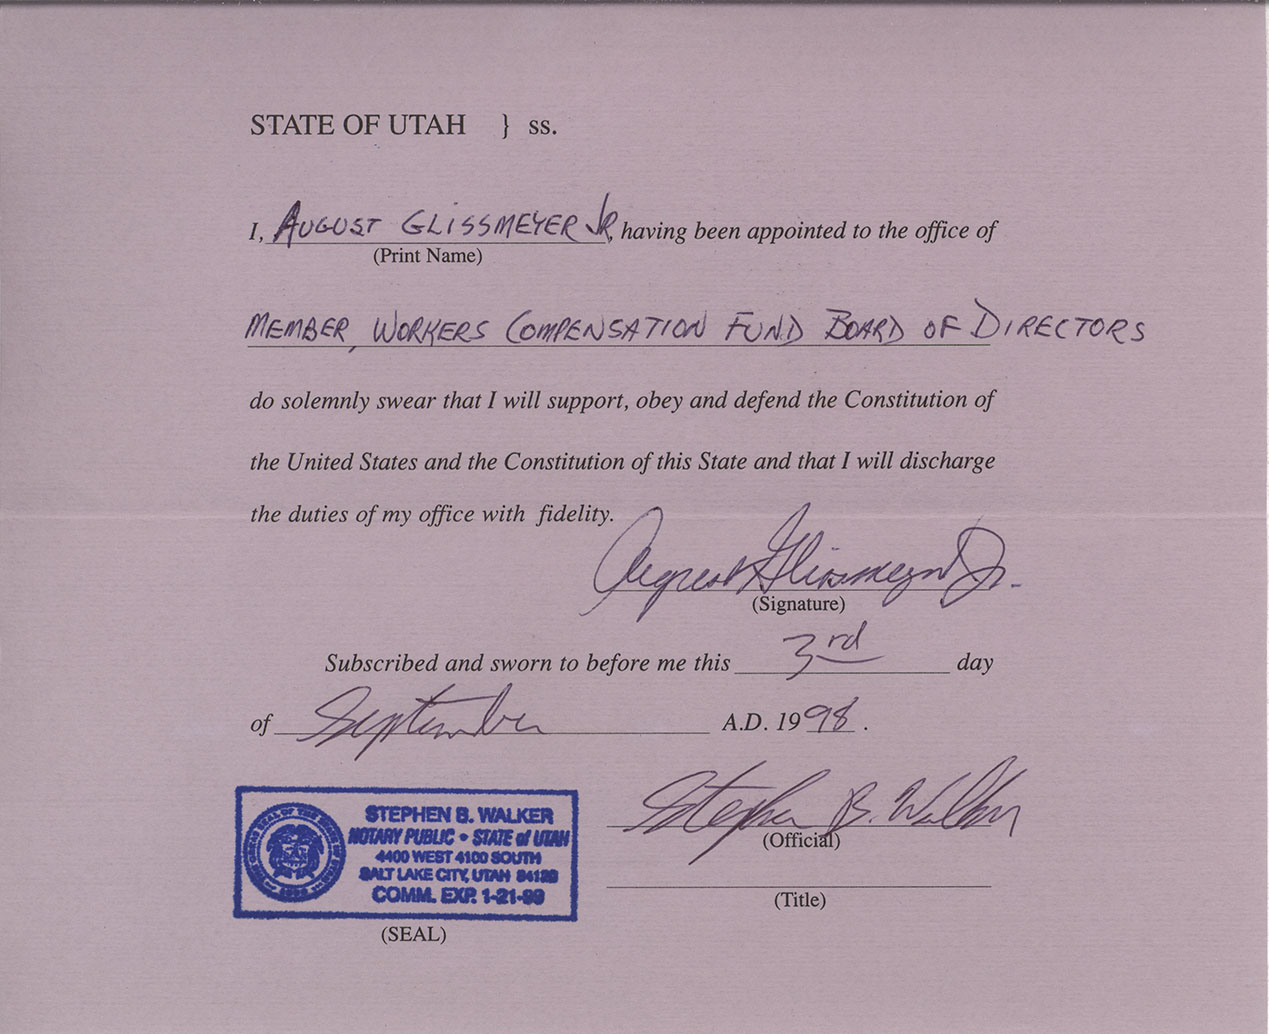 STATE OF UTAH } ss.
I, AUGUST GLISSMEYER JR, having been appointed to the office of
(Print Name)
MEMBER, WORKERS COMPENSATION FUND BOARD OF DIRECTORS
do solemnly swear that I will support, obey and defend the Constitution of
the United States and the Constitution of this State and that I will discharge
the duties of my office with fidelity.
August Glissmeyer Jr.
(Signature)
Subscribed and sworn to before me this 3rd day
of September A.D. 1998.
Stephen B. Walker
(Official)
(Title)
STEPHEN B. WALKER
NOTARY PUBLIC • STATE of UTAH
4400 WEST 4100 SOUTH
SALT LAKE CITY, UTAH
COMM. EXP. 1-21-99
(SEAL)